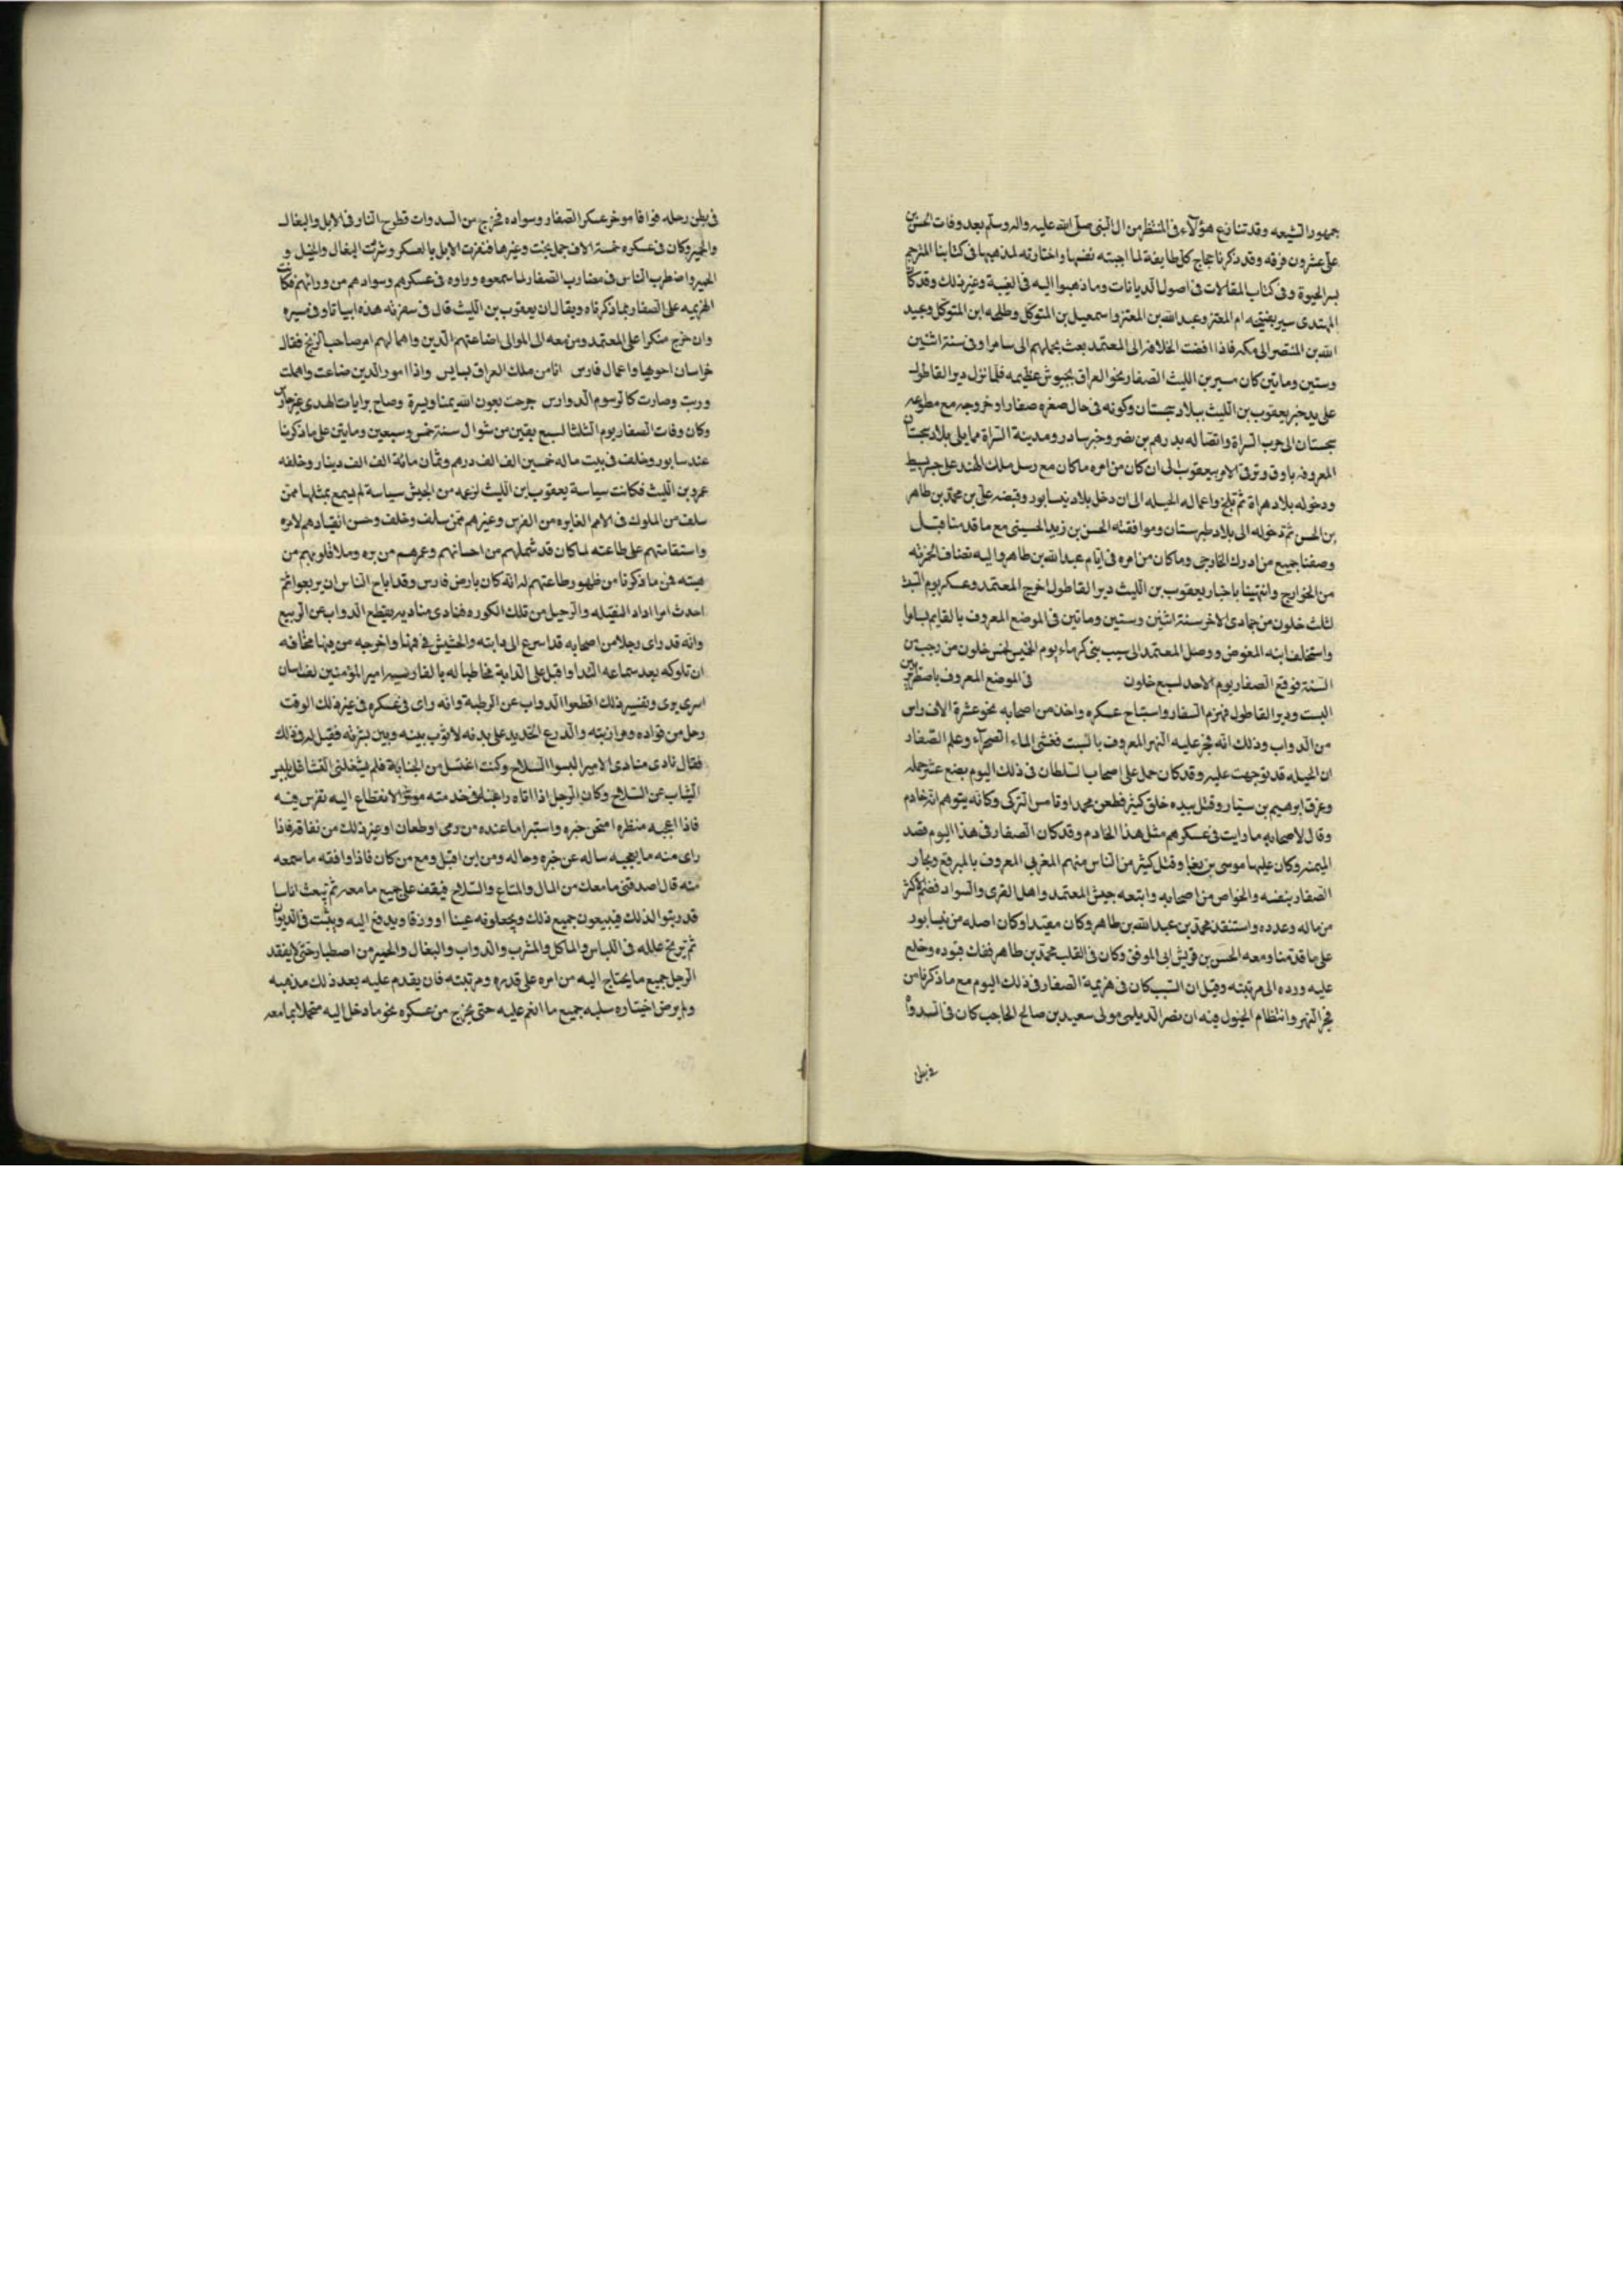 جمهور الشيعه وقد تنازع هؤلاء فى المنتظر من ال النبى صلى الله عليه واله وسلم بعد وفات الحسن بن
على عشرون فرقه وقد ذكرنا حجاج كل طايفة لما اجبته نفسها واختارته لمذهبها فى كتابنا المترجم
بسر الحيوة وفى كتاب المقالات فى اصول الديانات وما ذهبوا اليه فى الغيبة وغير ذلك وقد كان
المهتدى سير بقبيحه ام المعتز وعبد الله بن المعتز واسمعيل بن المتوكل وطلحه ابن المتوكل وعبد
الله بن المنتصر الى مكه فاذا افضت الخلافه الى المعتمد بعث بحملهم الى سامرا وفى سنة اثنين
وستين وماتين كان مسير بن الليث الصفار نحو العراق بجيوش عظيمه فلما نزل دير القاطول
على يد خبر يعقوب بن الليث ببلاد سجستان وكونه فى حال صغره صفارا وخروجه مع مطوعه
سجستان الى حرب الشراة واتصاله بدرهم بن نصر وخبر سادر ومدينة الشراة مما يلى بلاد سجستان
المعروفه باوق وترقى الامر بيعقوب الى ان كان من امره ماكان مع رسل ملك الهند على جسر بسط
ودخوله بلاد هراة ثم بلخ واعماله الحيله الى ان دخل بلاد نيسابور وقبضه على بن محمد بن طاهر
بن الحسن ثم دخوله الى بلاد طبرستان وموافقته الحسن بن زيد الحسينى مع ما قدمنا قبل
وصفنا جميع من ادرك الخارجى وماكان من امره فى ايام عبد الله بن طاهر واليه تضاف الحمزيه
من الخوارج وانتهينا باخبار يعقوب بن الليث دير القاطول اخرج المعتمد وعسكر يوم السبت
لثلث خلون من جمادى الاخر سنة اثنين وستين وماتين فى الموضع المعروف بالقايم بسامرا
واستخلف ابنه المفوض ووصل المعتمد الى سيب بنى كرماء يوم الخميس لخمس خلون من رجب من
السنة فوقع الصفار يوم الاحد لسبع خلون فى الموضع المعروف باصطربد بين
البست ودير القاطول فهزم الصفار واستباح عسكره واخذ من اصحابه نحو عشرة الاف راس
من الدواب وذلك انه فجر عليه النهر المعروف بالسبت فغشى الماء الصحراء وعلم الصفار
ان الحيله قد توجهت عليه وقد كان حمل على اصحاب السلطان فى ذلك اليوم بضع عشر حمله
وغرق ابرهيم بن سيار وقتل بيده خلق كثير فطعن محمد اوتامس التركى وكانه يتوهم انه خادم
وقال لاصحابه ما رايت فى عسكرهم مثل هذا الخادم وقد كان الصفار فى هذا اليوم قصد
الميمنه وكان عليها موسى بن بغا وقتل كثير من الناس منهم المغربى المعروف بالمبرقع ونجا
الصفار بنفسه والخواص من اصحابه واتبعه جيش المعتمد واهل القرى والسواد فغنم اكثر
من ماله وعدده واستنقذ محمد بن عبد الله بن طاهر وكان مقيدا وكان اصله من نيسابور
على ما قدمنا ومعه الحسن بن قريش الى الموفق وكان فى القلب محمد بن طاهر ففك قيوده وخلع
عليه ورده الى مرتبته وقيل ان السبب كان فى هزيمة الصفار فى ذلك اليوم مع ما ذكرنا من
فجر النهر وانتظام الخيول فيه ان نصر الديلمى مولى سعيد بن صالح الحاجب كان فى السدوات
فى بطن
فى بطن رحله فوافا موخر عسكر الصفار وسواده فخرج من السدوات فطرح النار فى الابل والبغال
والحمير وكان فى عسكره خمسة الاف جمل بخت وغيرها فنفرت الابل بالعسكر وشردت البغال والخيل و
الحمير واضطرب الناس فى مضارب الصفار لما سمعوه وراوه فى عسكرهم وسوادهم من ورائهم فكانت
الهزيمه على الصفار بما ذكرناه ويقال ان يعقوب بن الليث قال فى سفرته هذه ابياتا وفى مسيره
وان خرج منكرا على المعتمد ومن معه الى الموالى اضاعتهم الدين واهمالهم امر صاحب الزنج فقال
خراسان احويها واعمال فارس انا من ملك العراق بايس واذا امور الدين ضاعت واهملت
ورثت وصارت كالرسوم الدوارس خرجت بعون الله يمنا ونصرة وصاح برايات الهدى غير حارس
وكان وفات الصفار يوم الثلثا لسبع بقين من شوال سنة خمس وسبعين ومايتن على ما ذكرنا
عند سابور وخلف فى بيت ماله خمسين الف الف درهم وثمان مائة الف الف دينار وخلفه
عمرو بن الليث فكانت سياسة يعقوب ابن الليث لزعه من الجيش سياسة لم يسمع بمثلها ممن
سلف من الملوك فى الامم الغابره من الفرس وغيرهم ممن سلف وخلف وحسن انقيادهم لامره
واستقامتهم على طاعته لما كان قد شملهم من احسانهم وغمرهم من بره وملا قلوبهم من
هيبته فمن ما ذكرنا من ظهور طاعتهم له انه كان بارض فارس وقد اباح الناس ان يربعوا ثم
احدث امرا اراد النقيله والرحيل من تلك الكوره فنادى مناديه بقطع الدواب عن الربيع
وانه قد راى رجلا من اصحابه قد اسرع الى دابته والحشيش فى فمها واخرجه من فيها مخافه
ان تلوكه بعد سماعه الندا واقبل على الدابة مخاطبا له بالفارسيه امير المؤمنين
وتفسير ذلك اقطعوا الدواب عن الرطبة وانه راى فى عسكره فى غير ذلك الوقت
رجل من قواده ومرازبته والدرع الحديد على بدنه لا ثوب بينه وبين بشرته فقيل له فى ذلك
فقال نادى منادى الامير البسوا السلاح وكنت اغتسل من الجنابة فلم يشغلنى التشاغل بلبس
الثياب عن السلاح وكان الرجل اذا اتاه راغبا فى خدمته موثرا الانقطاع اليه تفرس فيه
فاذا اعجبه منظره امتحن خبره واستبرا ما عنده من رمى او طعان او غير ذلك من نفاقه فاذا
راى منه ما يعجبه ساله عن خبره وحاله ومن اين اقبل ومع من كان فاذا وافقه ما سمعه
منه قال اصدقنى ما معك من المال والمتاع والسلاح فيقف على جميع ما معه ثم يبعث اناسا
قد رتبوا لذلك فيبيعون جميع ذلك ويجعلونه عينا او ورقا ويدفع اليه ويثبت فى الديوان
ثم تزيح علله فى اللباس والماكل والمشرب والدواب والبغال والحمير من اصطبله حتى لا يفقد
الرجل جميع ما يحتاج اليه من امره على قدره ومرتبته فان يقدم عليه بعد ذلك مذهبه
ولم يرض اختياره سلبه جميع ما انعم عليه حتى يخرج من عسكره نحو ما دخل اليه متحملا بما معه